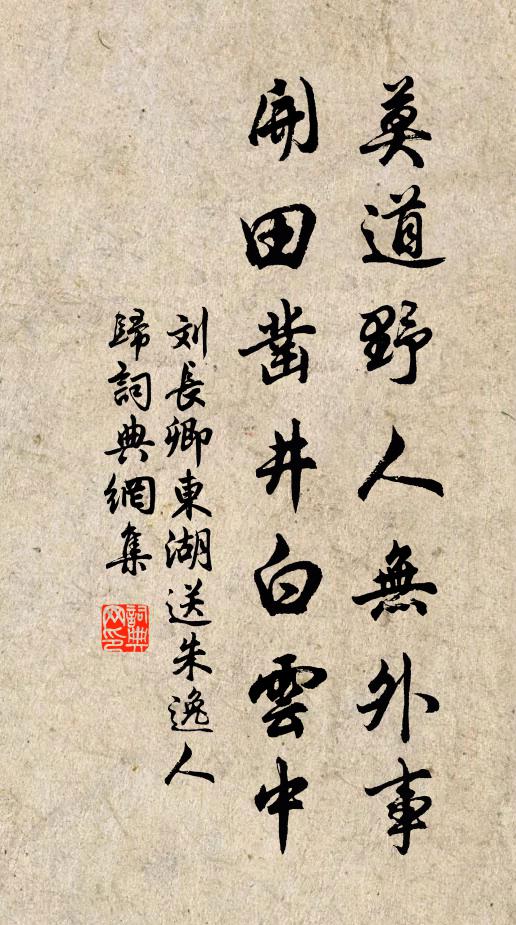 莫道野人無外事
開田鑿井白雲中
刘長卿東湖送朱逸人
歸詞典網集
詞典
网印